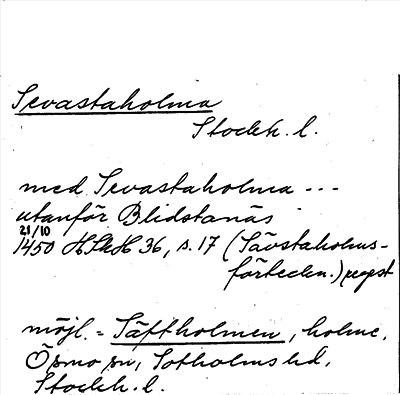 Sevastaholma
Stockh. l.
med Sevastaholma ---
utanför Blidstanäs
21/10
1450 HSkH 36, s. 17 (Sävstaholms-
förteckn.) regest
möjl. = Säftholmen, holme,
Ösmo sn, Sotholms hd,
Stockh. l.